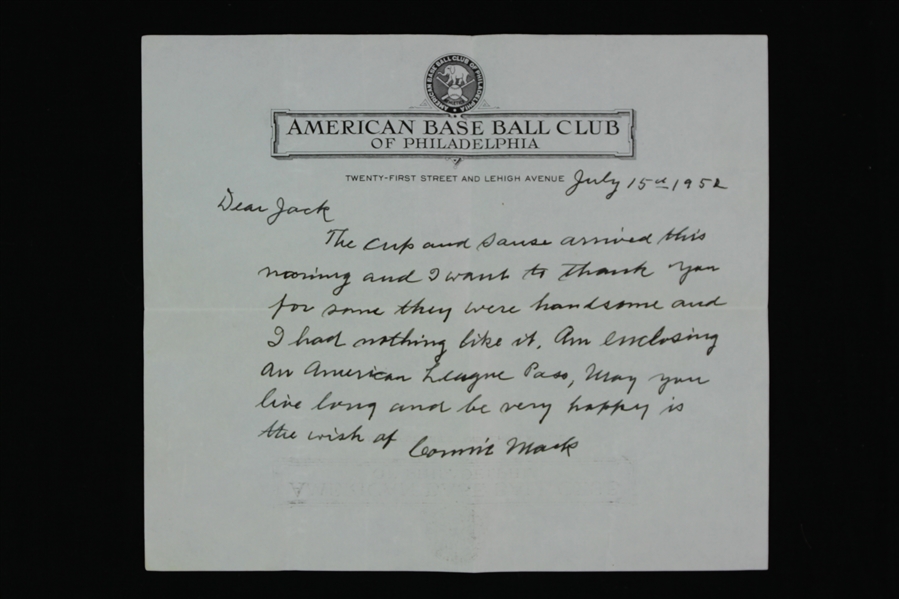 AMERICAN BASE BALL CLUB OF PHILADELPHIA
AMERICAN BASE BALL CLUB
OF PHILADELPHIA
TWENTY-FIRST STREET AND LEHIGH AVENUE July 15d 1952
Dear Jack
The cup and sause arrived this
moring and I want to thank you
for some they were handsome and
I had nothing like it. Am enclosing
an American League Pass, May you
live long and be very happy is
the wish of Connie Mack